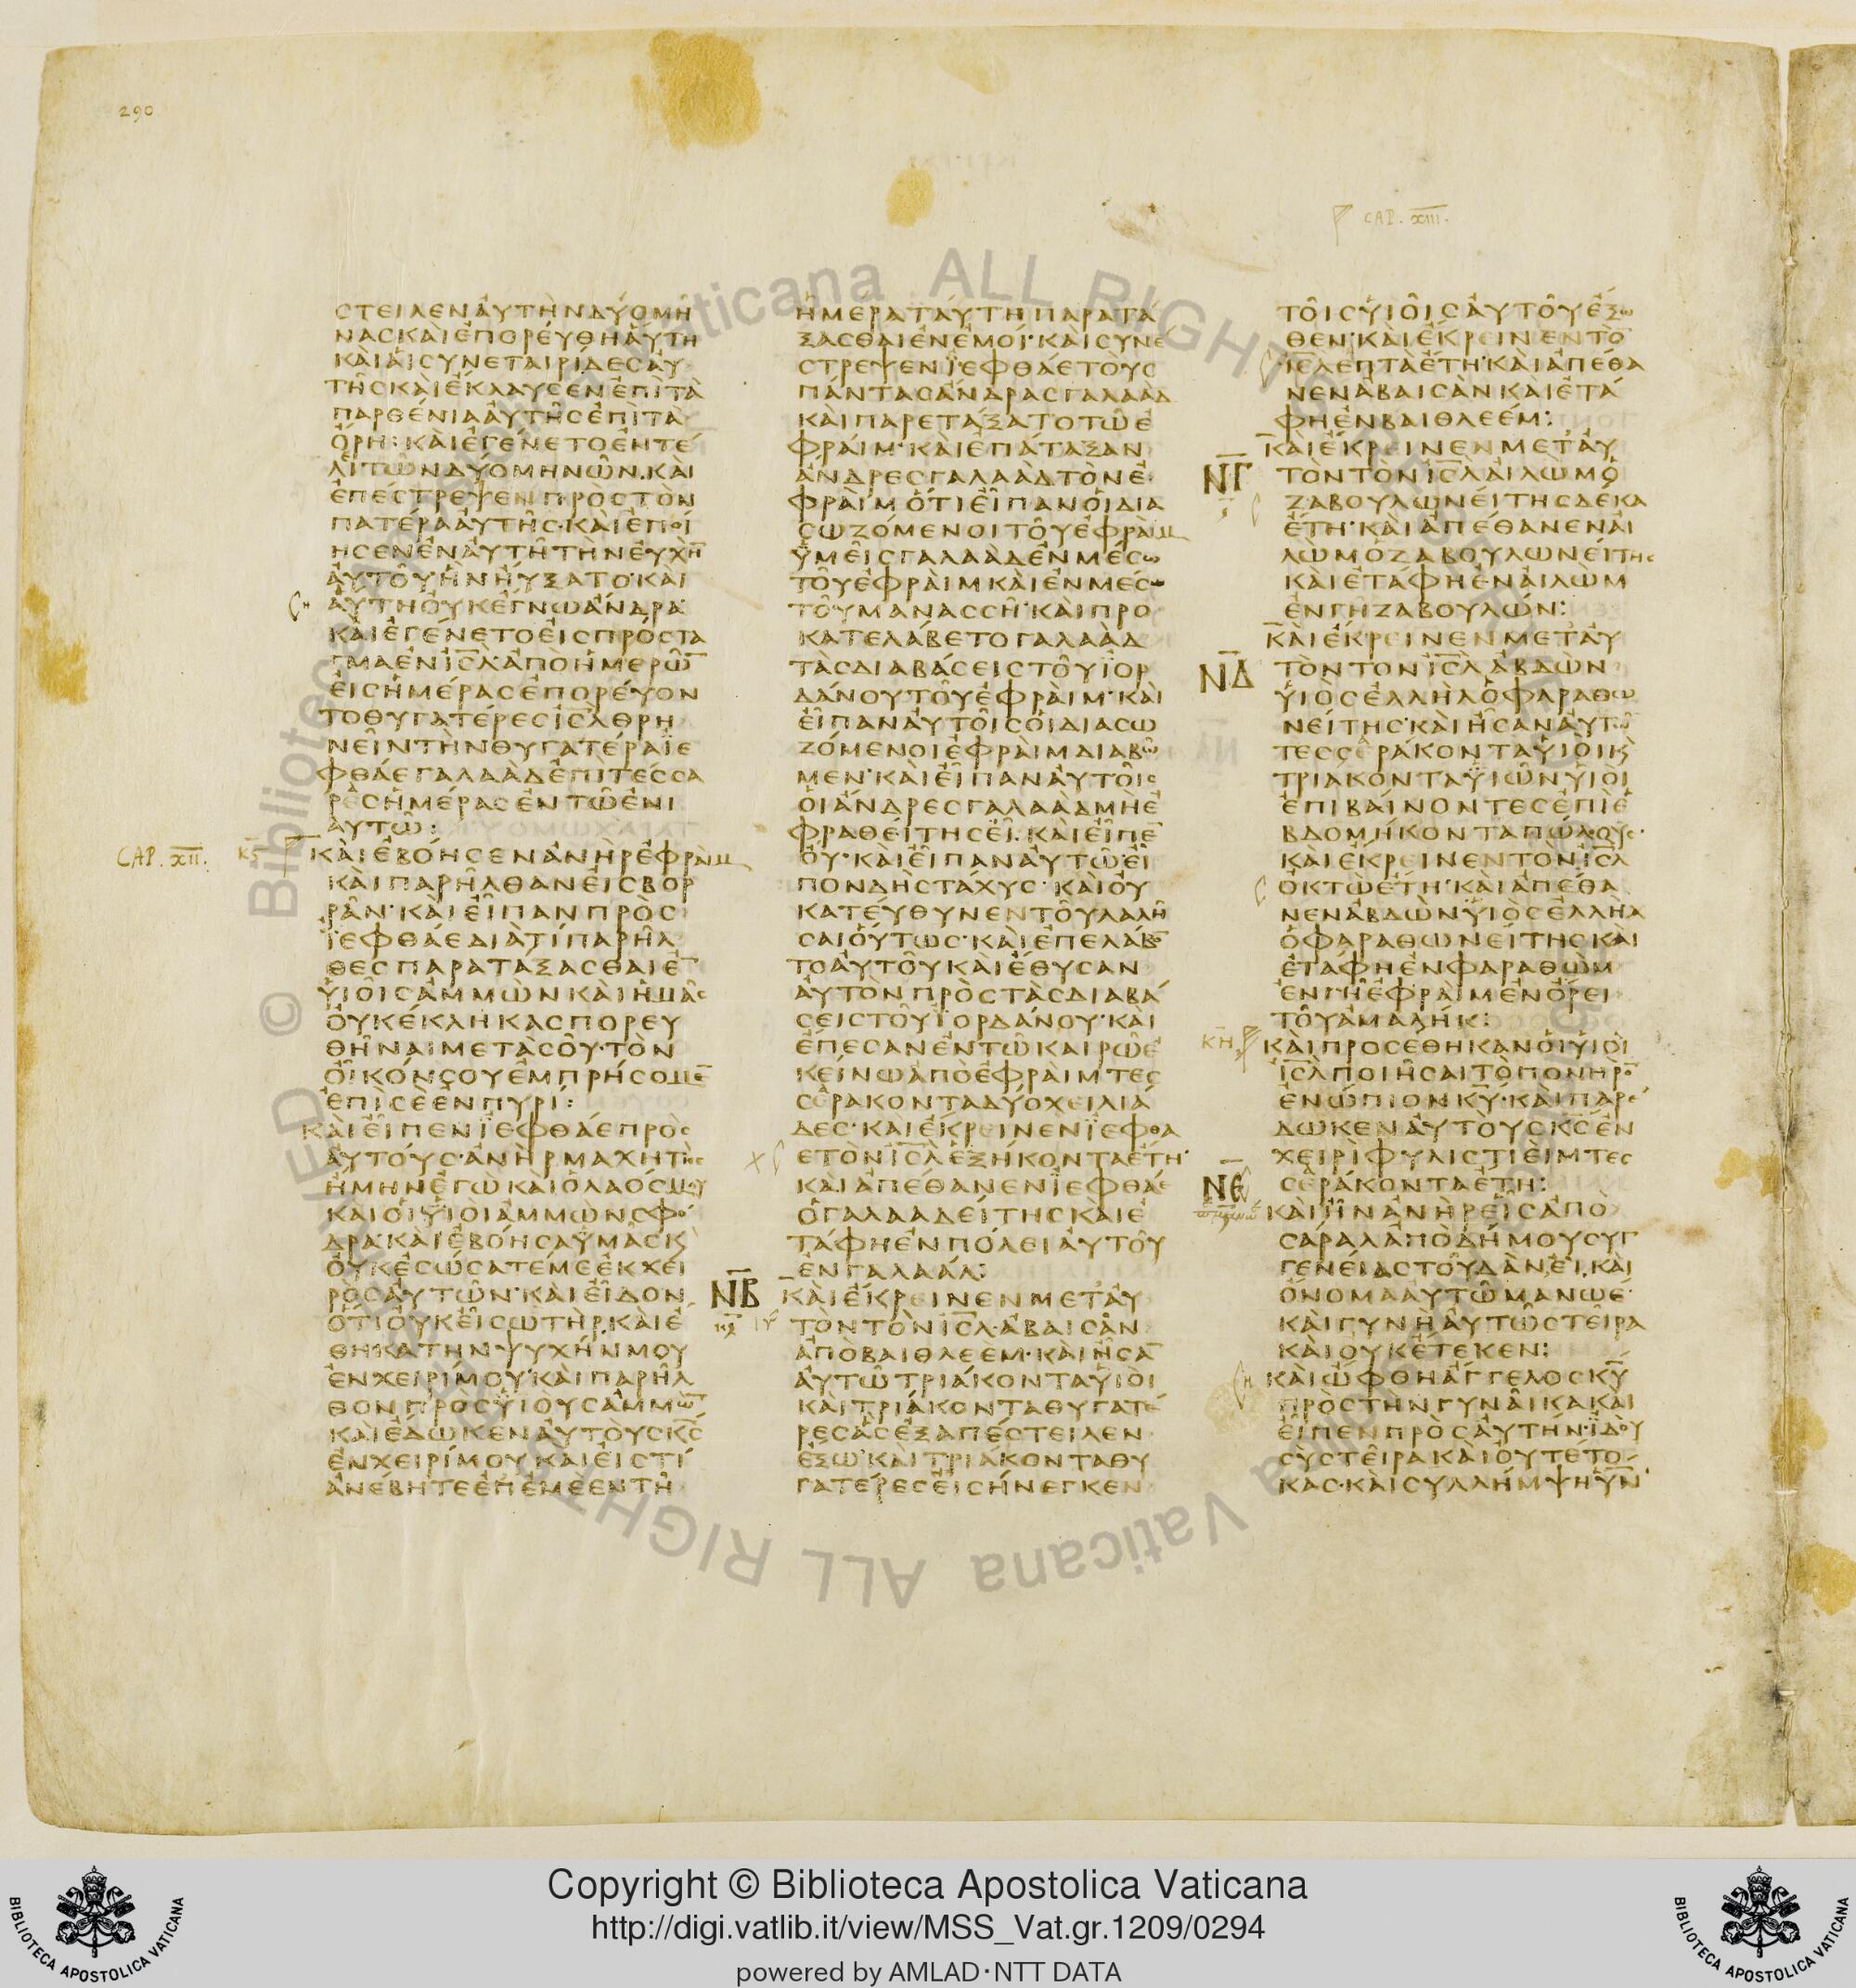 290
CAP. XIII.
ϹΤΕΙΛΕΝΑΥΤΗΝΔΥΟΜΗ
ΝΑϹΚΑΙΕΠΟΡΕΥΘΗΑΥΤΗ
ΚΑΙΑΙϹΥΝΕΤΑΙΡΙΔΕϹΑΥ
ΤΗϹΚΑΙΕΚΛΑΥϹΕΝΕΠΙΤΑ
ΠΑΡΘΕΝΙΑΑΥΤΗϹΕΠΙΤΑ
ΟΡΗ: ΚΑΙΕΓΕΝΕΤΟΕΝΤΕ
ΛΕΙΤΩΝΔΥΟΜΗΝΩΝ·ΚΑΙ
ΕΠΕϹΤΡΕΨΕΝΠΡΟϹΤΟΝ
ΠΑΤΕΡΑΑΥΤΗϹ·ΚΑΙΕΠΟΙ
ΗϹΕΝΕΝΑΥΤΗΤΗΝΕΥΧΗ̅
ΑΥΤΟΥΗΝΗΥΞΑΤΟ·ΚΑΙ
ΑΥΤΗΟΥΚΕΓΝΩΑΝΔΡΑ·
ΚΑΙΕΓΕΝΕΤΟΕΙϹΠΡΟϹΤΑ
ΓΜΑΕΝΙ̅Ϲ̅Λ̅ΑΠΟΗΜΕΡΩ̅
ΕΙϹΗΜΕΡΑϹΕΠΟΡΕΥΟΝ
ΤΟΘΥΓΑΤΕΡΕϹΙ̅Ϲ̅Λ̅ΘΡΗ
ΝΕΙΝΤΗΝΘΥΓΑΤΕΡΑΪΕ
ΦΘΑΕΓΑΛΑΑΔΕΠΙΤΕϹϹΑ
ΡΕϹΗΜΕΡΑϹΕΝΤΩΕΝΙ
ΑΥΤΩ:
CAP. XII.
ΚΑΙΕΒΟΗϹΕΝΑΝΗΡΕΦΡΑΙΜ
ΚΑΙΠΑΡΗΛΘΑΝΕΙϹΒΟΡ
ΡΑΝ·ΚΑΙΕΙΠΑΝΠΡΟϹ
ΪΕΦΘΑΕΔΙΑΤΙΠΑΡΗΛ
ΘΕϹΠΑΡΑΤΑΞΑϹΘΑΙΕ̅
ΥΙΟΙϹΑΜΜΩΝΚΑΙΗΜΑϹ
ΟΥΚΕΚΛΗΚΑϹΠΟΡΕΥ
ΘΗΝΑΙΜΕΤΑϹΟΥ·ΤΟΝ
ΟΙΚΟΝϹΟΥΕΜΠΡΗϹΟΜΕ̅
ΕΠΙϹΕΕΝΠΥΡΙ:
ΚΑΙΕΙΠΕΝΪΕΦΘΑΕΠΡΟϹ
ΑΥΤΟΥϹ·ΑΝΗΡΜΑΧΗΤΗϹ
ΗΜΗΝΕΓΩΚΑΙΟΛΑΟϹΜΟΥ
ΚΑΙΟΙΫΙΟΙΑΜΜΩΝϹΦΟ
ΔΡΑΚΑΙΕΒΟΗϹΑΫΜΑϹΚ
ΟΥΚΕϹΩϹΑΤΕΜΕΕΚΧΕΙ
ΡΟϹΑΥΤΩΝ·ΚΑΙΕΙΔΟΝ
ΟΤΙΟΥΚΕΙϹΩΤΗΡ·ΚΑΙΕ
ΘΗΚΑΤΗΝΨΥΧΗΝΜΟΥ
ΕΝΧΕΙΡΙΜΟΥ·ΚΑΙΠΑΡΗΛ
ΘΟΝΠΡΟϹΫΙΟΥϹΑΜΜΩ̅
ΚΑΙΕΔΩΚΕΝΑΥΤΟΥϹΚ̅Ϲ̅
ΕΝΧΕΙΡΙΜΟΥΚΑΙΕΙϹΤΙ
ΑΝΕΒΗΤΕΕΠΕΜΕΕΝΤΗ
ΗΜΕΡΑΤΑΥΤΗΠΑΡΑΤΑ
ΞΑϹΘΑΙΕΝΕΜΟΙ·ΚΑΙϹΥΝΕ
ϹΤΡΕΨΕΝΪΕΦΘΑΕΤΟΥϹ
ΠΑΝΤΑϹΑΝΔΡΑϹΓΑΛΑΑΔ
ΚΑΙΠΑΡΕΤΑΞΑΤΟΤΩΕ
ΦΡΑΙΜ·ΚΑΙΕΠΑΤΑΞΑΝ
ΑΝΔΡΕϹΓΑΛΑΑΔΤΟΝΕ
ΦΡΑΙΜΟΤΙΕΙΠΑΝΟΙΔΙΑ
ϹΩΖΟΜΕΝΟΙΤΟΥΕΦΡΑΙΜ
ΫΜΕΙϹΓΑΛΑΑΔΕΝΜΕϹΩ
ΤΟΥΕΦΡΑΙΜΚΑΙΕΝΜΕϹΩ
ΤΟΥΜΑΝΑϹϹΗ·ΚΑΙΠΡΟ
ΚΑΤΕΛΑΒΕΤΟΓΑΛΑΑΔ
ΤΑϹΔΙΑΒΑϹΕΙϹΤΟΥΪΟΡ
ΔΑΝΟΥΤΟΥΕΦΡΑΙΜ·ΚΑΙ
ΕΙΠΑΝΑΥΤΟΙϹΟΙΔΙΑϹΩ
ΖΟΜΕΝΟΙΕΦΡΑΙΜΔΙΑΒΩ
ΜΕΝ·ΚΑΙΕΙΠΑΝΑΥΤΟΙϹ
ΟΙΑΝΔΡΕϹΓΑΛΑΑΔΜΗΕ
ΦΡΑΘΕΙΤΗϹΕΙ·ΚΑΙΕΙΠΕ̅
ΟΥ·ΚΑΙΕΙΠΑΝΑΥΤΩΕΙ
ΠΟΝΔΗϹΤΑΧΥϹ·ΚΑΙΟΥ
ΚΑΤΕΥΘΥΝΕΝΤΟΥΛΑΛΗ
ϹΑΙΟΥΤΩϹ·ΚΑΙΕΠΕΛΑΒΟ̅
ΤΟΑΥΤΟΥΚΑΙΕΘΥϹΑΝ
ΑΥΤΟΝΠΡΟϹΤΑϹΔΙΑΒΑ
ϹΕΙϹΤΟΥΪΟΡΔΑΝΟΥ·ΚΑΙ
ΕΠΕϹΑΝΕΝΤΩΚΑΙΡΩΕ
ΚΕΙΝΩΑΠΟΕΦΡΑΙΜΤΕϹ
ϹΕΡΑΚΟΝΤΑΔΥΟΧΕΙΛΙΑ
ΔΕϹ·ΚΑΙΕΚΡΕΙΝΕΝΪΕΦΘΑ
ΕΤΟΝΙ̅Ϲ̅Λ̅ΕΞΗΚΟΝΤΑΕΤΗ·
ΚΑΙΑΠΕΘΑΝΕΝΪΕΦΘΑΕ
ΟΓΑΛΑΑΔΕΙΤΗϹΚΑΙΕ
ΤΑΦΗΕΝΠΟΛΕΙΑΥΤΟΥ
ΕΝΓΑΛΑΑΔ:
Ν̅Β̅ ΚΑΙΕΚΡΕΙΝΕΝΜΕΤΑΥ
ΤΟΝΤΟΝΙ̅Ϲ̅Λ̅·ΑΒΑΙϹΑΝ
ΑΠΟΒΑΙΘΛΕΕΜ·ΚΑΙΗϹΑ̅
ΑΥΤΩΤΡΙΑΚΟΝΤΑΥΙΟΙ
ΚΑΙΤΡΙΑΚΟΝΤΑΘΥΓΑΤΕ
ΡΕϹΑϹΕΞΑΠΕϹΤΕΙΛΕΝ
ΕΞΩ·ΚΑΙΤΡΙΑΚΟΝΤΑΘΥ
ΓΑΤΕΡΕϹΕΙϹΗΝΕΓΚΕΝ
ΤΟΙϹΥΙΟΙϹΑΥΤΟΥΕΞΩ
ΘΕΝ·ΚΑΙΕΚΡΕΙΝΕΝΤΟ̅
Ι̅Ϲ̅Λ̅ΕΠΤΑΕΤΗ·ΚΑΙΑΠΕΘΑ
ΝΕΝΑΒΑΙϹΑΝΚΑΙΕΤΑ
ΦΗΕΝΒΑΙΘΛΕΕΜ:
ΚΑΙΕΚΡΕΙΝΕΝΜΕΤΑΥ
Ν̅Γ̅ ΤΟΝΤΟΝΙ̅Ϲ̅Λ̅ΑΙΛΩΜΟ
ΖΑΒΟΥΛΩΝΕΙΤΗϹΔΕΚΑ
ΕΤΗ·ΚΑΙΑΠΕΘΑΝΕΝΑΙ
ΛΩΜΟΖΑΒΟΥΛΩΝΕΙΤΗϹ
ΚΑΙΕΤΑΦΗΕΝΑΙΛΩΜ
ΕΝΓΗΖΑΒΟΥΛΩΝ:
ΚΑΙΕΚΡΕΙΝΕΝΜΕΤΑΥ
Ν̅Δ̅ ΤΟΝΤΟΝΙ̅Ϲ̅Λ̅ΑΒΔΩΝ
ΥΙΟϹΕΛΛΗΛΟΦΑΡΑΘΩ
ΝΕΙΤΗϹ·ΚΑΙΗϹΑΝΑΥΤΩ
ΤΕϹϹΕΡΑΚΟΝΤΑΥΙΟΙΚ
ΤΡΙΑΚΟΝΤΑΫΙΩΝΥΙΟΙ
ΕΠΙΒΑΙΝΟΝΤΕϹΕΠΙΕ
ΒΔΟΜΗΚΟΝΤΑΠΩΛΟΥϹ·
ΚΑΙΕΚΡΕΙΝΕΝΤΟΝΙ̅Ϲ̅Λ̅
ΟΚΤΩΕΤΗ·ΚΑΙΑΠΕΘΑ
ΝΕΝΑΒΔΩΝΫΙΟϹΕΛΛΗΛ
ΟΦΑΡΑΘΩΝΕΙΤΗϹΚΑΙ
ΕΤΑΦΗΕΝΦΑΡΑΘΩΜ
ΕΝΓΗΕΦΡΑΙΜΕΝΟΡΕΙ
ΤΟΥΑΜΑΛΗΚ:
ΚΗ ΚΑΙΠΡΟϹΕΘΗΚΑΝΟΙΥΙΟΙ
Ι̅Ϲ̅Λ̅ΠΟΙΗϹΑΙΤΟΠΟΝΗΡΟ̅
ΕΝΩΠΙΟΝΚ̅Υ̅·ΚΑΙΠΑΡΕ
ΔΩΚΕΝΑΥΤΟΥϹΚ̅Ϲ̅ΕΝ
ΧΕΙΡΙΦΥΛΙϹΤΙΕΙΜΤΕϹ
Ν̅Ε̅ ϹΕΡΑΚΟΝΤΑΕΤΗ:
ΚΑΙΗΝΑΝΗΡΕΙϹΑΠΟ
ϹΑΡΑΛΑΠΟΔΗΜΟΥϹΥΓ
ΓΕΝΕΙΑϹΤΟΥΔΑΝΕΙ·ΚΑΙ
ΟΝΟΜΑΑΥΤΩΜΑΝΩΕ·
ΚΑΙΓΥΝΗΑΥΤΩϹΤΕΙΡΑ
ΚΑΙΟΥΚΕΤΕΚΕΝ:
ΚΑΙΩΦΘΗΑΓΓΕΛΟϹΚ̅Υ̅
ΠΡΟϹΤΗΝΓΥΝΑΙΚΑΚΑΙ
ΕΙΠΕΝΠΡΟϹΑΥΤΗΝ·ΪΔΟΥ
ϹΥϹΤΕΙΡΑΚΑΙΟΥΤΕΤΟ
ΚΑϹ·ΚΑΙϹΥΛΛΗΜΨΗΥ̅Ν̅
© Biblioteca Apostolica Vaticana ALL RIGHTS RESERVED
Copyright © Biblioteca Apostolica Vaticana
http://digi.vatlib.it/view/MSS_Vat.gr.1209/0294
powered by AMLAD·NTT DATA
BIBLIOTECA APOSTOLICA VATICANA
BIBLIOTECA APOSTOLICA VATICANA